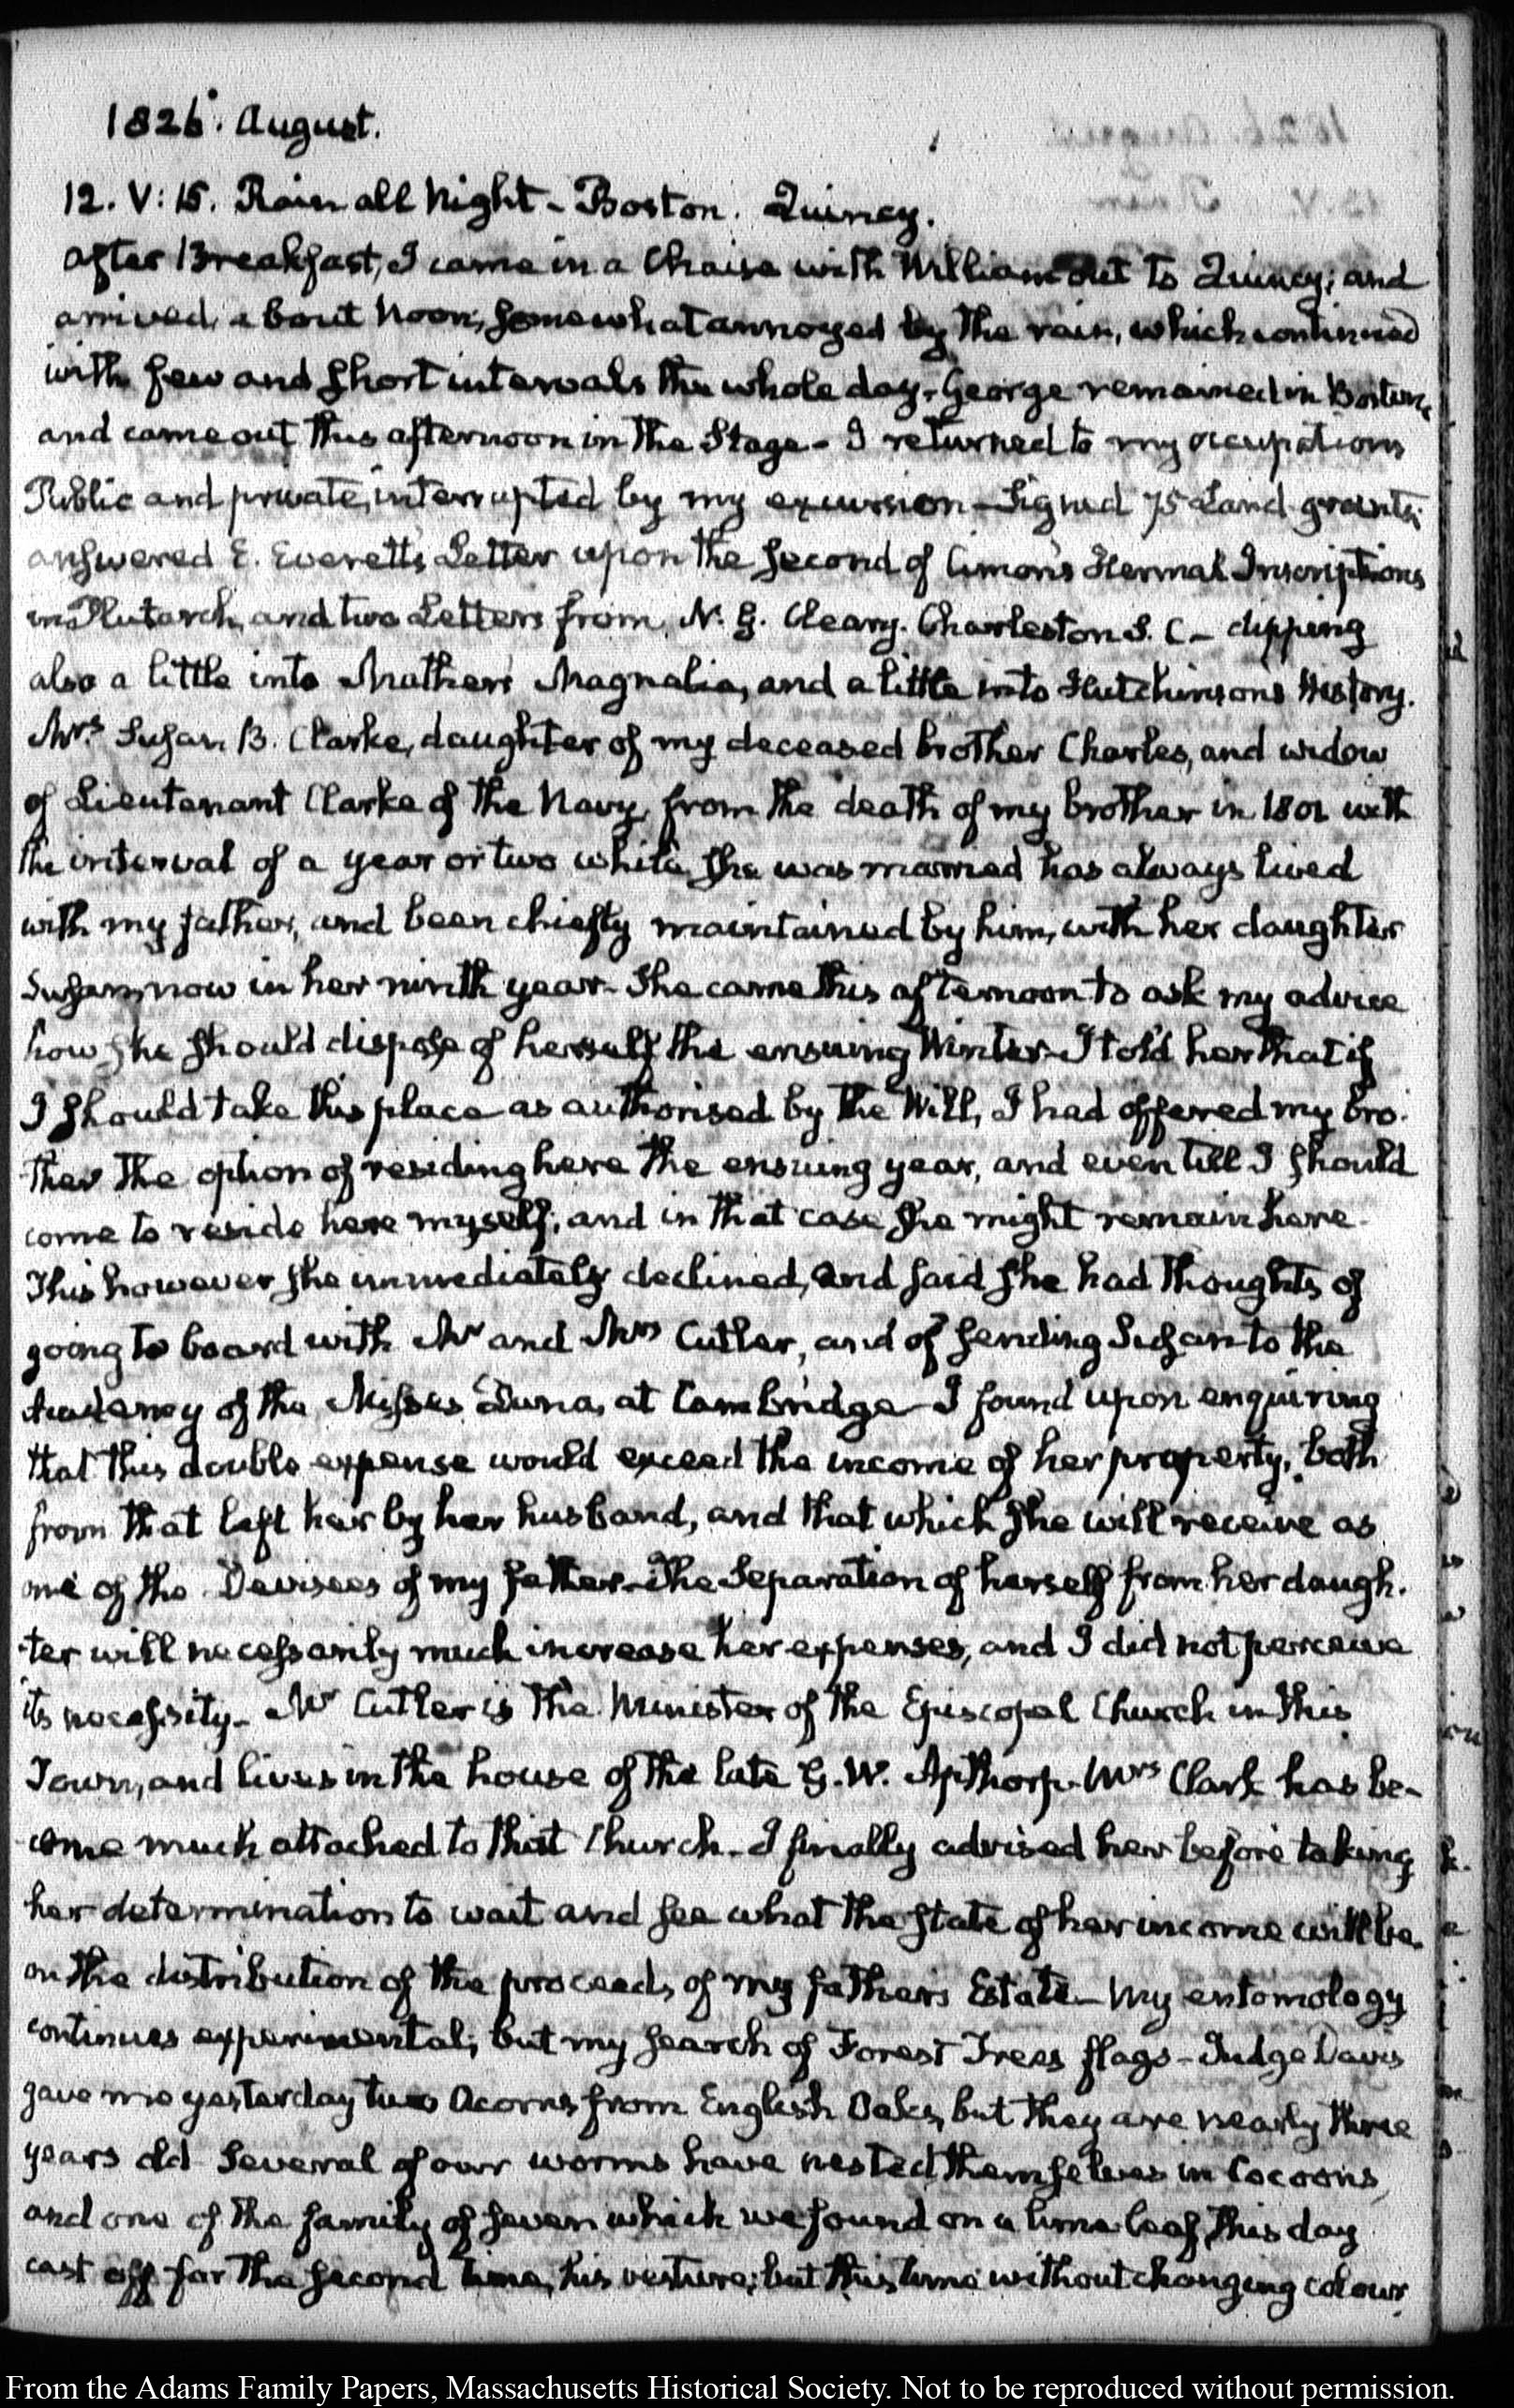 1826. August.
12. V: 15. Rain all Night - Boston. Quincy.
After Breakfast, I came in a Chaise with William out to Quincy; and
arrived about Noon, somewhat annoyed by the rain, which continued
with few and short intervals the whole day. George remained in Boston
and came out this afternoon in the Stage - I returned to my occupations
Public and private, interrupted by my excursion - Signed 75 Land grants;
answered E. Everett's Letter upon the second of Cimon's Hermal Inscriptions
in Plutarch, and two Letters from N. G. Cleary. Charleston S. C - dipping
also a little into Mather's Magnalia, and a little into Hutchinson's History.
Mrs. Susan B. Clarke, daughter of my deceased brother Charles, and widow
of Lieutenant Clarke of the Navy, from the death of my brother in 1801 with
the interval of a year or two while she was married has always lived
with my father, and been chiefly maintained by him, with her daughter
Susan, now in her ninth year - She came this afternoon to ask my advice
how she should dispose of herself the ensuing Winter - I told her that if
I should take this place as authorised by the Will, I had offered my bro-
ther the option of residing here the ensuing year, and even till I should
come to reside here myself; and in that case she might remain here.
This however she immediately declined, and said she had thoughts of
going to board with Mr and Mrs Cutler, and of sending Susan to the
Academy of the Misses at Cambridge - I found upon enquiring
that this double expense would exceed the income of her property, both
from that left her by her husband, and that which she will receive as
one of the Devisees of my father - The Separation of herself from her daugh-
ter will necessarily much increase her expenses, and I did not perceive
its necessity - Mr Cutler is the Minister of the Episcopal Church in this
Town, and lives in the house of the late G. W. Apthorp. Mrs Clark has be-
come much attached to that Church - I finally advised her before taking
her determination to wait and see what the state of her income will be
on the distribution of the proceeds of my father's Estate - My entomology
continues experimental; but my search of Forest Trees flags - Judge Davis
gave me yesterday two Acorns from English Oaks, but they are nearly three
years old - Several of our worms have nested themselves in Cocoons,
and one of the family of seven which we found on a lime leaf, this day
cast off for the second time, his vesture; but this time without changing colour
From the Adams Family Papers, Massachusetts Historical Society. Not to be reproduced without permission.